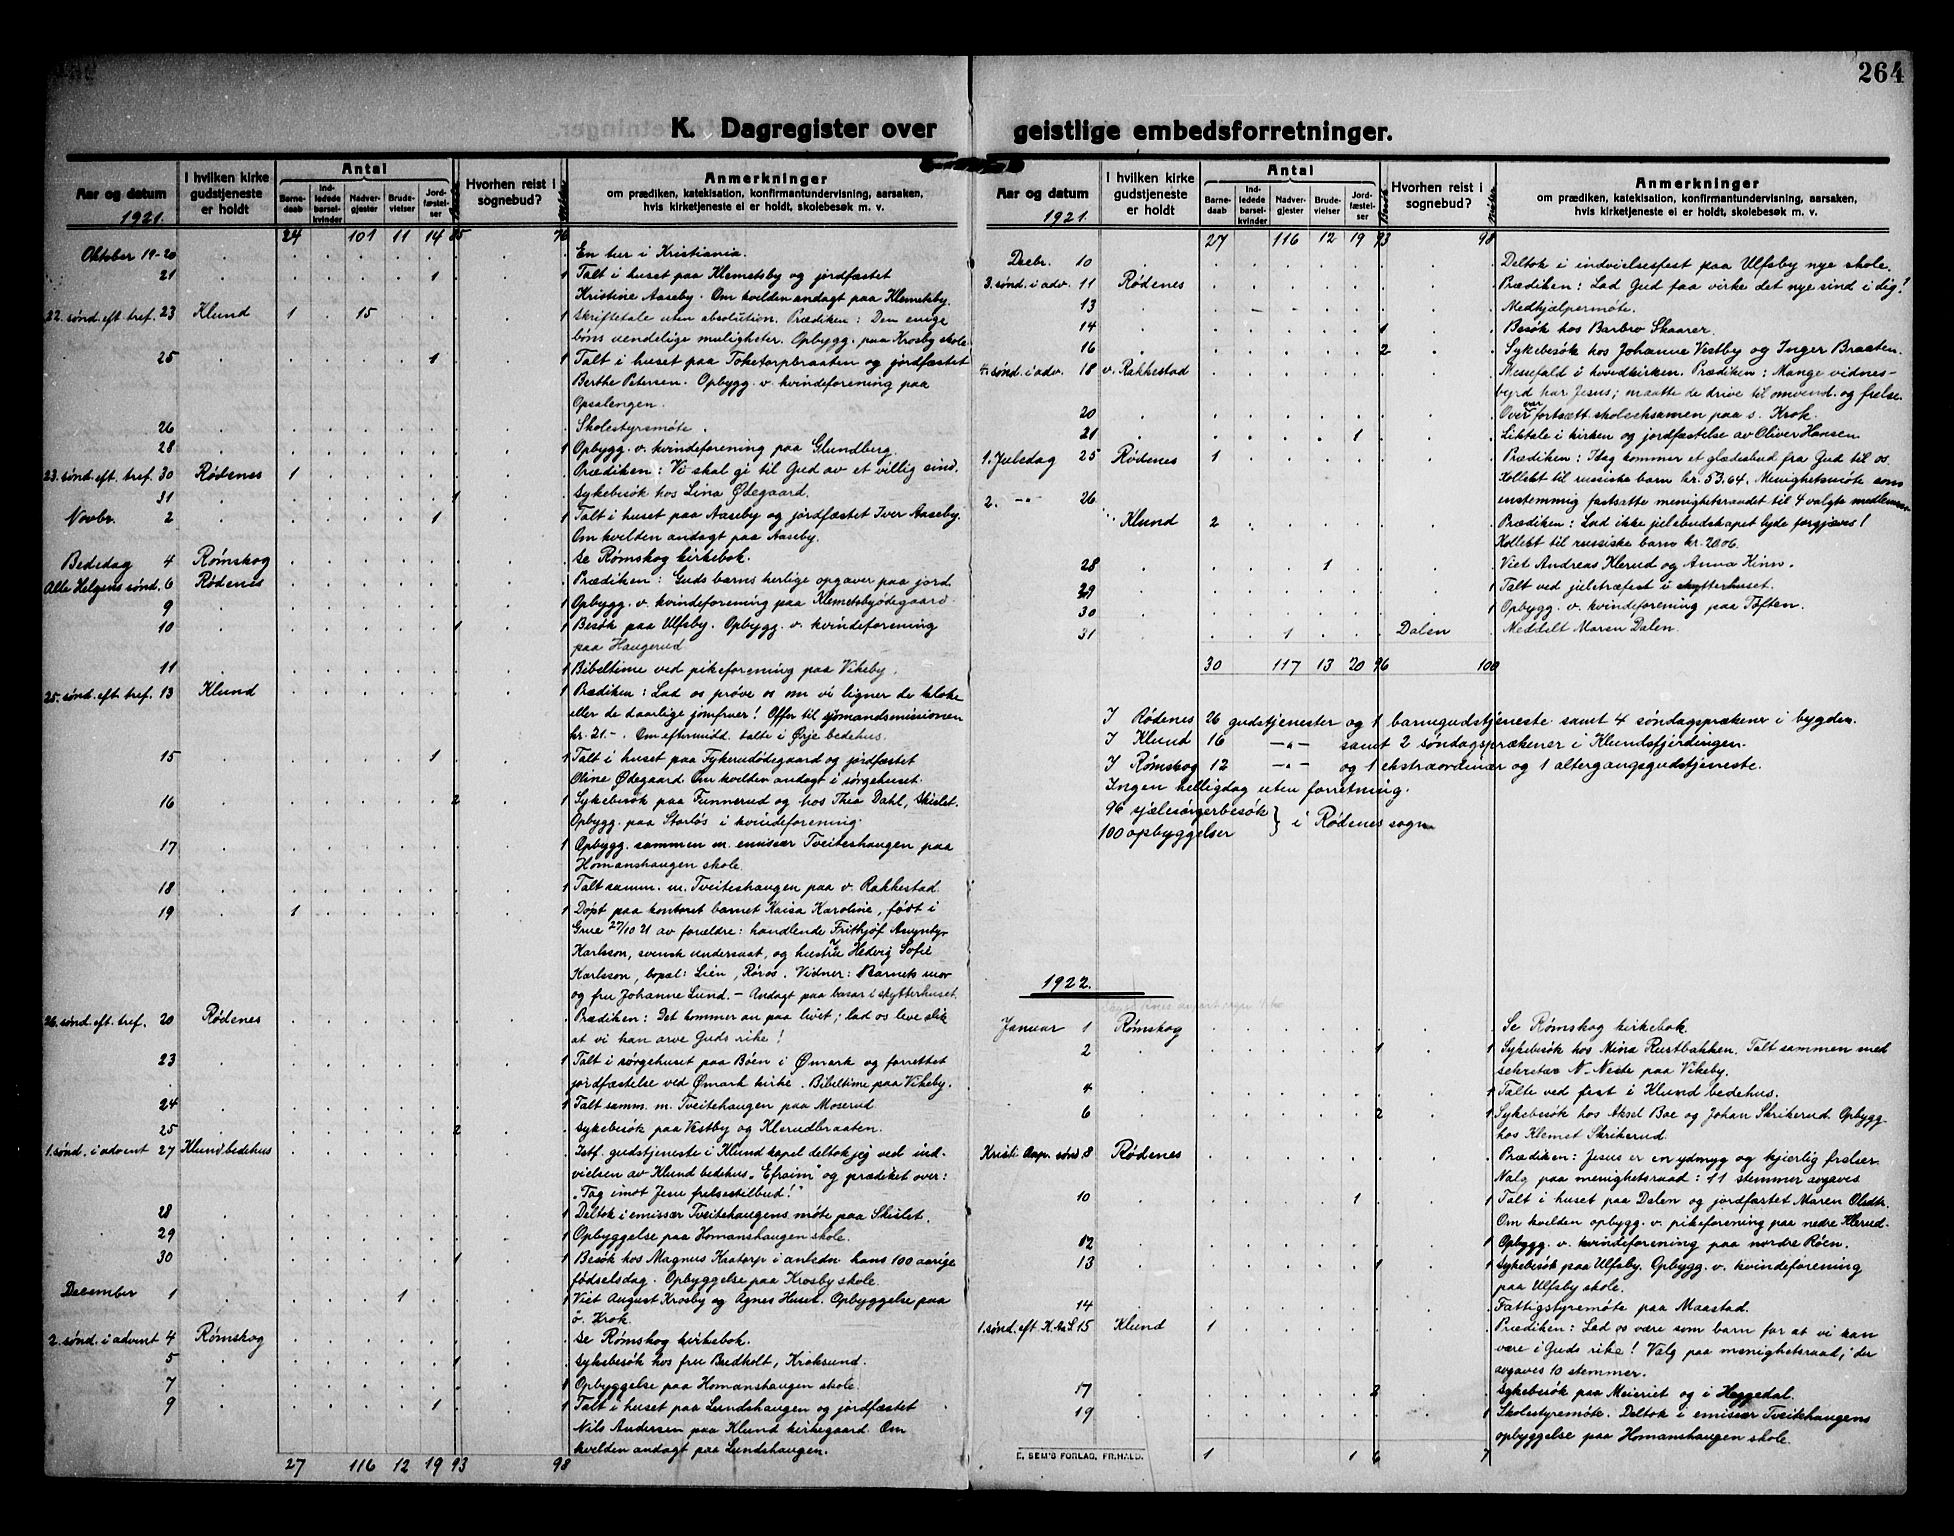 264
K. Dagregister over
Aar og datum
1921.
I hvilken kirke gudstjeneste er holdt
Antal
Barne-daab
Ind-ledede barsel-kvinder
Nadver-gjester
Brude-vielser
Jord-fæstel-ser
Hvorhen reist i sognebud?
Anmerkninger
om prædiken, katekisation, konfirmantundervisning, aarsaken,
hvis kirketjeneste ei er holdt, skolebesøk m. v.
24 101 11 14 85 76
Oktober 19-20 En tur i Kristiania.
21 1 1 Talt i huset paa Klemetsby og jordfæstet
Kristine Aaseby. Om kvelden andagt paa Klemetsby.
22. sønd. eft. tref. 23 Klund 1 15 1 Skriftetale uten absolution. Prædiken: Den enige
bøns uendelige muligheter. Opbygg. paa Krosby skole.
25 1 1 Talt i huset paa Toketorpbraaten og jordfæstet
Berthe Petersen. Opbygg. v. kvindeforening paa
Opsalengen.
26 Skolestyrsmøte.
28 1 Opbygg. v. kvindeforening paa Glundberg.
23. sønd. eft. tref. 30 Rødenes 1 Prædiken: Vi skal gi til Gud av et villig sind.
31 1 Sykebesøk hos Lina Ødegaard.
Novbr. 2 1 1 Talt i huset paa Aaseby og jordfæstet Iver Aaseby.
Om kvelden andagt paa Aaseby.
Bededag 4 Rømskog Se Rømskog kirkebok.
Alle Helgens sønd. 6 Rødenes Prædiken: Guds barns herlige opgaver paa jord.
9 1 Opbygg. v. kvindeforening paa Klemetsbyødegaard.
10 1 1 Besøk paa Ulfsby. Opbygg. v. kvindeforening
paa Haugerud
11 1 Bibeltime ved pikeforening paa Vikeby.
25. sønd. eft. tref. 13 Klund 1 Prædiken: Lad os prøve os om vi ligner de kloke
eller de daarlige jomfruer! Offer til sjømandsmissionen
kr. 21.-. Om eftermidd. talte i Ørje bedehus.
15 1 1 Talt i huset paa Fykerudødegaard og jordfæstet
Oline Ødegaard. Om kvelden andagt i sørgehuset.
16 2 1 Sykebesøk paa Funnerud og hos Thea Dahl, Skislet.
Opbygg. paa Storløs i kvindeforening.
17 1 Opbygg. sammen m. emissær Tveitehaugen paa
Homanshaugen skole.
18 1 Talt samm. m. Tveitehaugen paa v. Rakkestad.
19 1 1 Døpt paa kontoret barnet Kaisa Karoline, født i
Grue 27/10 21 av forældre: handlende Frithjof
Karlsson, svensk undersaat, og hustru Hedvig Sofie
Karlsson, bopæl: Lien, Røros. Vidner: Barnets mor
og fru Johanne Lund. - Andagt paa basar i skytterhuset.
26. sønd. eft. tref. 20 Rødenes Prædiken: Det kommer an paa livet; lad os leve slik
at vi kan arve Guds rike!
23 1 Talt i sørgehuset paa Böen i Ømark og forrettet
jordfæstelse ved Ømark kirke. Bibeltime paa Vikeby.
24 1 Talt samm. m. Tveitehaugen paa Moserud
25 2 Sykebesøk paa Vestby og Klerudbraaten.
1. sønd. i advent 27 Klund bedehus 1 Istf. gudstjeneste i Klund kapel deltok jeg ved ind-
vielsen av Klund bedehus „Efraim" og prædiket over:
„Tag imot Jesu frelsestilbud!"
28 1 Deltok i emissær Tveitehaugens møte paa Skislet.
29 1 Opbyggelse paa Homanshaugen skole.
30 1 1 Besøk hos Magnus Kaatorp i anledn. hans 100 aarige
fødselsdag. Opbyggelse paa Krosby skole.
December 1 1 1 Viet August Krosby og Agnes Huset. Opbyggelse paa
ö. Krok.
2. sønd. i advent 4 Rømskog Se Rømskog kirkebok.
5 1 Sykebesøk hos fru Budholt, Kroksund.
7 1 Opbyggelse paa Homanshaugen skole
9 1 1 Talt i huset paa Lundshaugen og jordfæstet
Nils Andersen paa Klund kirkegaard. Om
kvelden andagt paa Lundshaugen.
27 116 12 19 93 98
geistlige embedsforretninger.
Aar og datum
1921.
I hvilken kirke gudstjeneste er holdt
Antal
Barne-daab
Ind-ledede barsel-kvinder
Nadver-gjester
Brude-vielser
Jord-fæstel-ser
Hvorhen reist i sognebud?
Anmerkninger
om prædiken, katekisation, konfirmantundervisning, aarsaken,
hvis kirketjeneste ei er holdt, skolebesøk m. v.
27 116 12 19 93 98
Decbr. 10 Deltok i indvielsesfest paa Ulfsby nye skole.
3. sønd. i adv. 11 Rødenes Prædiken: Lad Gud faa virke det nye sind i dig!
13 Medhjælpermøte.
14 1 Besøk hos Barbro Skaarer.
16 2 Sykebesøk hos Johanne Vestby og Inger Braaten.
4. sønd. i adv. 18 v. Rakkestad Messefald i hovedkirken. Prædiken: Mange vidnes-
byrd har Jesus; maatte de drive til omvend. og frelse.
20 Overvar fortsætt. skoleeksamen paa s. Krok.
21 1 Liktale i kirken og jordfæstelse av Oliver Hansen
1. Juledag 25 Rødenes 1 Prædiken: Idag kommer et glædesbud fra Gud til os.
Kollekt til russiske barn kr. 53.64. Menighetsmøte som
2. -"- 26 enstemmig fastsatte menighetsraadet til 4 valgte medlemmer.
Klund 2 Prædiken: Lad ikke julebudskapet lyde forgjæves!
Kollekt til russiske barn kr. 20.06.
28 1 Viet Andreas Klerud og Anna Kinn.
29 1 Talt ved juletræfest i skytterhuset.
30 1 Opbygg. v. kvindeforening paa Toften.
31 1 Dalen Meddelt Maren Dalen.
30 117 13 20 96 100
I Rødenes 26 gudstjenester og 1 barnegudstjeneste samt 4 søndagsprækener i bygden.
I Klund 16 -"- samt 2 søndagsprækener i Klundsfjerdingen.
I Rømskog 12 -"- og 1 ekstraordinær og 1 altergangsgudstjeneste.
Ingen helligdag uten forretning.
96 sjælesørgerbesøk
100 opbyggelser } i Rødenes sogn
1922.
Januar 1 Rømskog Se Rømskog kirkebok.
2 1 1 Sykebesøk hos Mina Rustbakken. Talt sammen med
sekretær N. Neste paa Vikeby.
4 1 Talte ved fest i Klund bedehus.
6 2 1 Sykebesøk hos Aksel Boe og Johan Skrikerud. Opbygg.
hos Klemet Skrikerud.
Kristi Aap. sønd. 8 Rødenes Prædiken: Jesus er en ydmyg og kjærlig frelser.
Valg paa menighetsraad: 11 stemmer avgaves
10 1 1 Talt i huset paa Dalen og jordfæstet Maren Olsdtr.
Om kvelden opbygg. v. pikeforening paa nedre Klerud.
12 1 Opbygg. v. kvindeforening paa nordre Röen.
13 1 1 Sykebesøk paa Ulfsby. Opbygg. v. kvindeforening
paa Ulfsby skole.
14 Fattigstyremøte paa Maastad.
1. sønd. eft. K. Aa. S. 15 Klund 1 Prædiken: Lad os være som barn for at vi kan
være i Guds rike! Valg paa menighetsraad; der
avgaves 10 stemmer.
17 2 Sykebesøk paa Meieriet og i Heggedal.
19 1 Skolestyremøte. Deltok i emissær Tveitehaugens
opbyggelse paa Homanshaugen skole.
1 1 6 7
E. SEM'S FORLAG, FR.HALD.